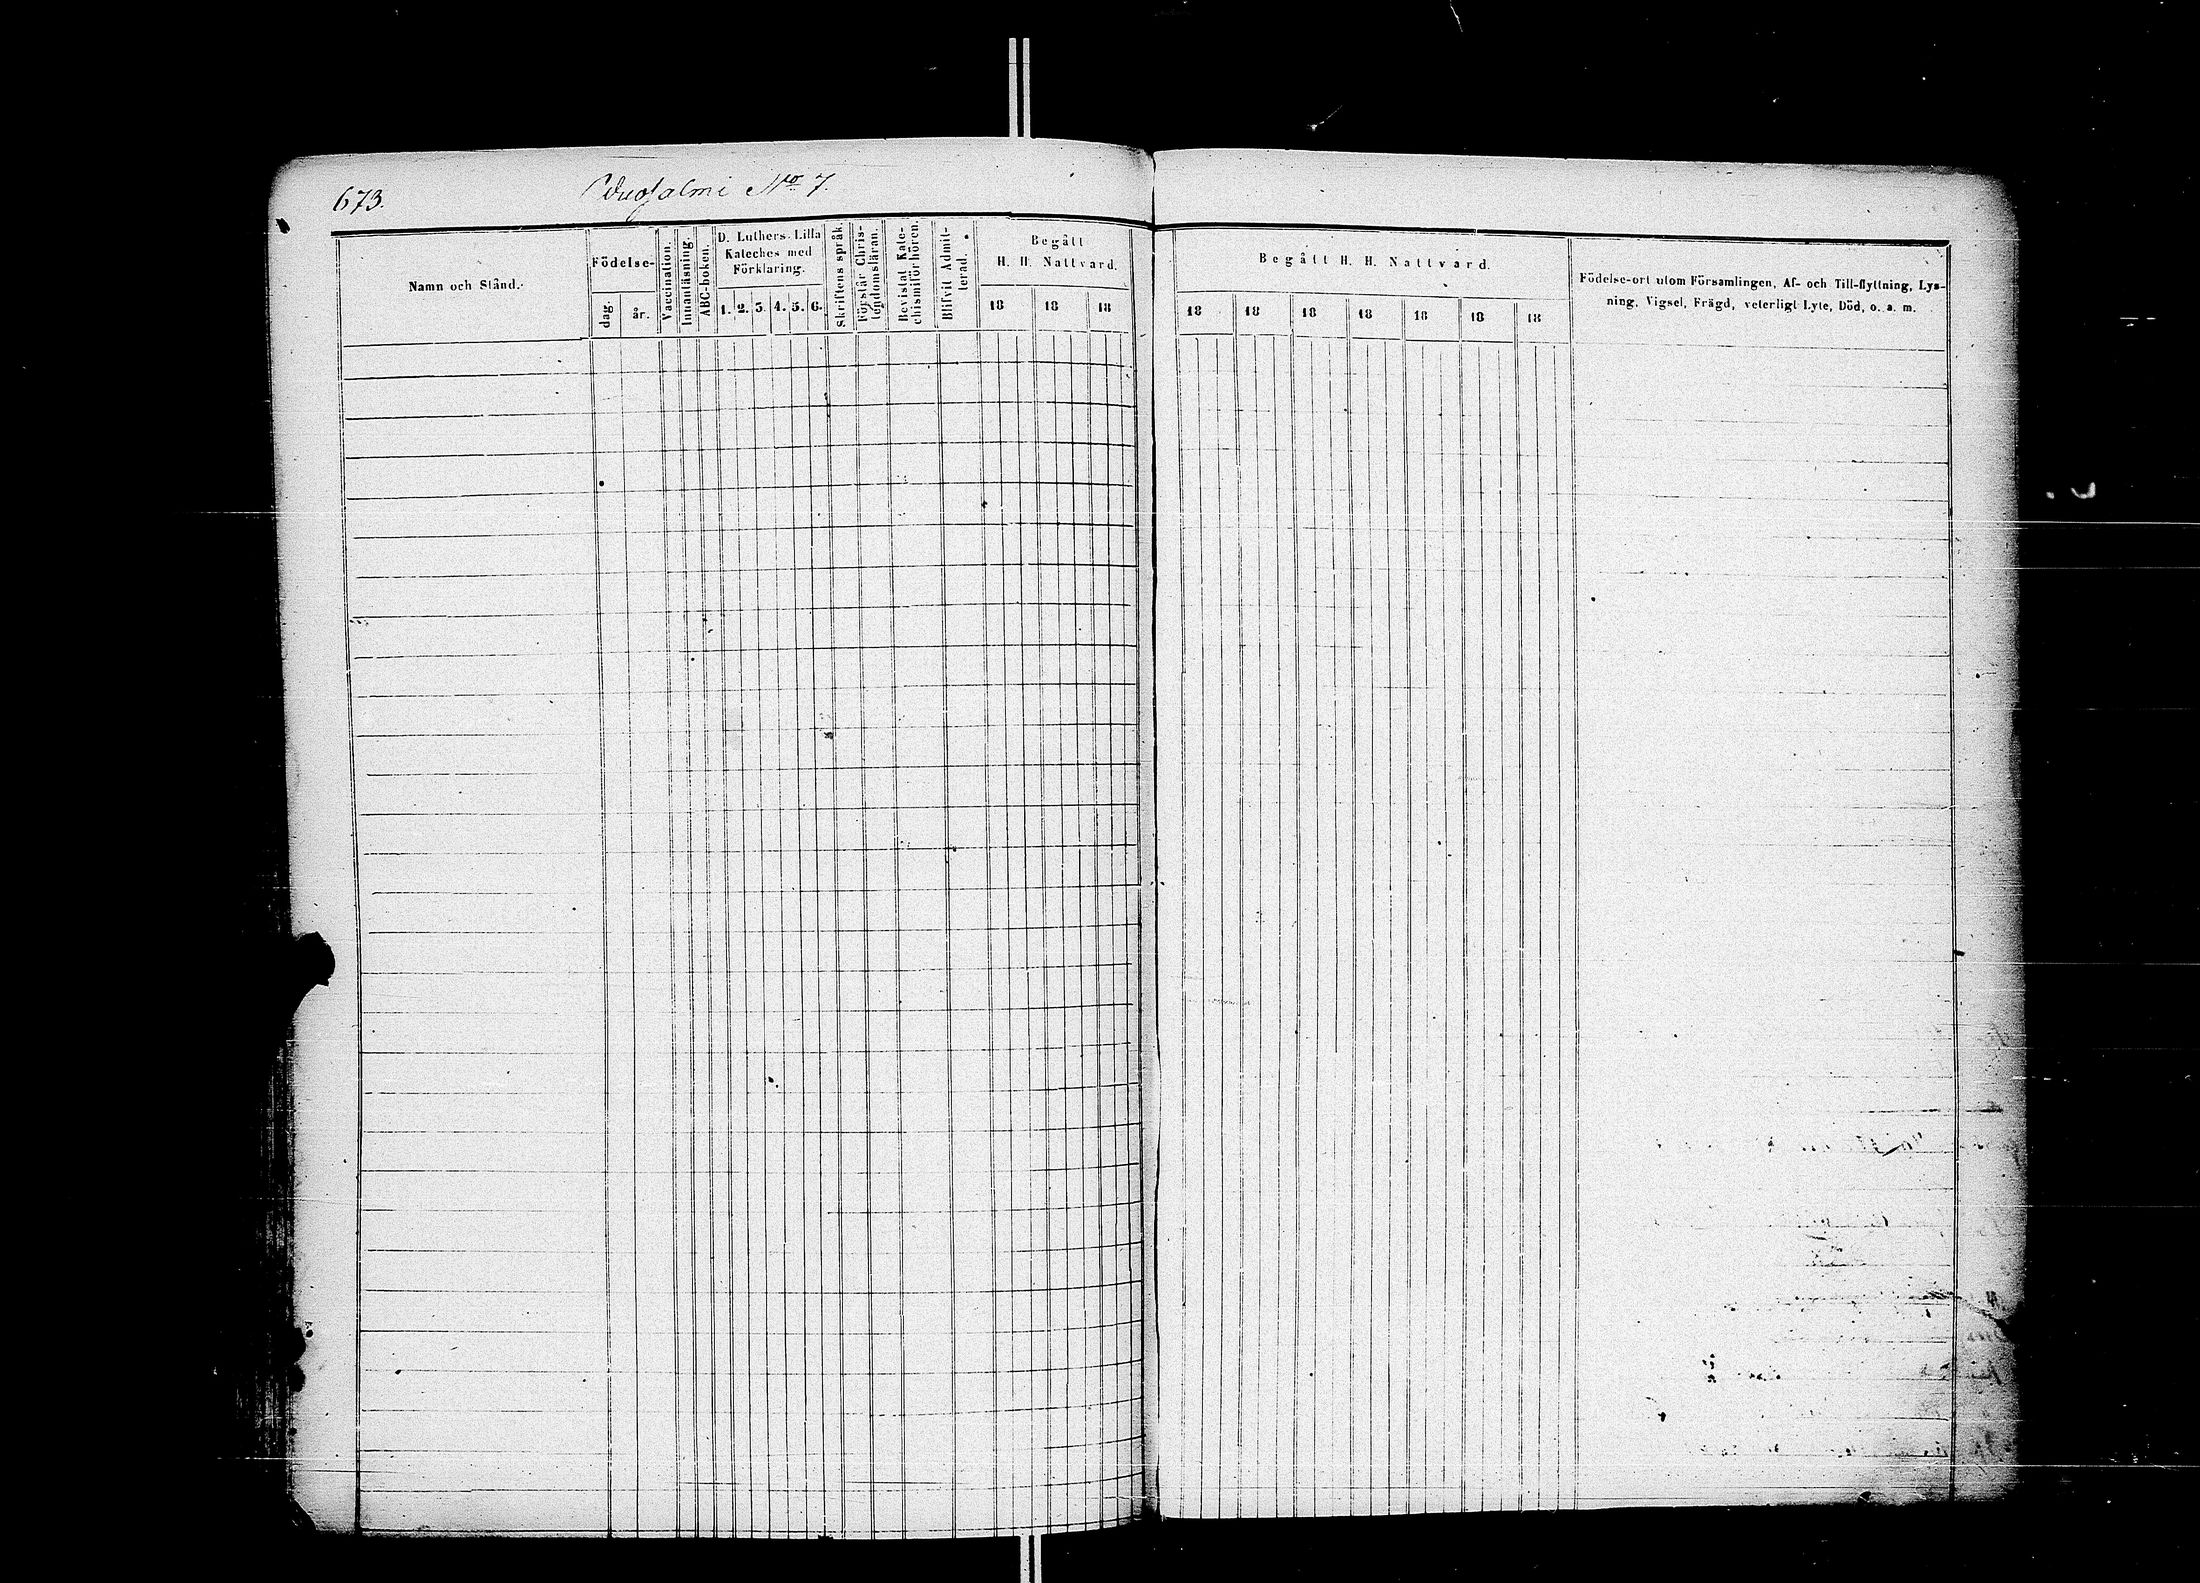 673.
Wuosalmi No 7.
Namn och Stånd.
Födelse-
dag.
år.
Vaccination.
Innanläsning.
ABC-boken.
D. Luthers Lilla
Kateches med
Förklaring.
1. 2. 3. 4. 5. 6.
Skriftens språk.
Förstår Chris-
tendomsläran.
Bevistat Kate-
chismiförhören.
Blifvit Admit-
terad.
Begått
H. H. Nattvard.
18 18 18
Begått H. H. Nattvard.
18 18 18 18 18 18 18
Födelse-ort utom Församlingen, Af- och Till-flyttning, Lys-
ning, Vigsel, Frägd, veterligt Lyte, Död, o. a. m.